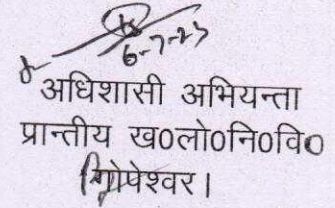 6-7-23
अधिशासी अभियन्ता
प्रान्तीय ख०लो०नि०वि०
गोपेश्वर।